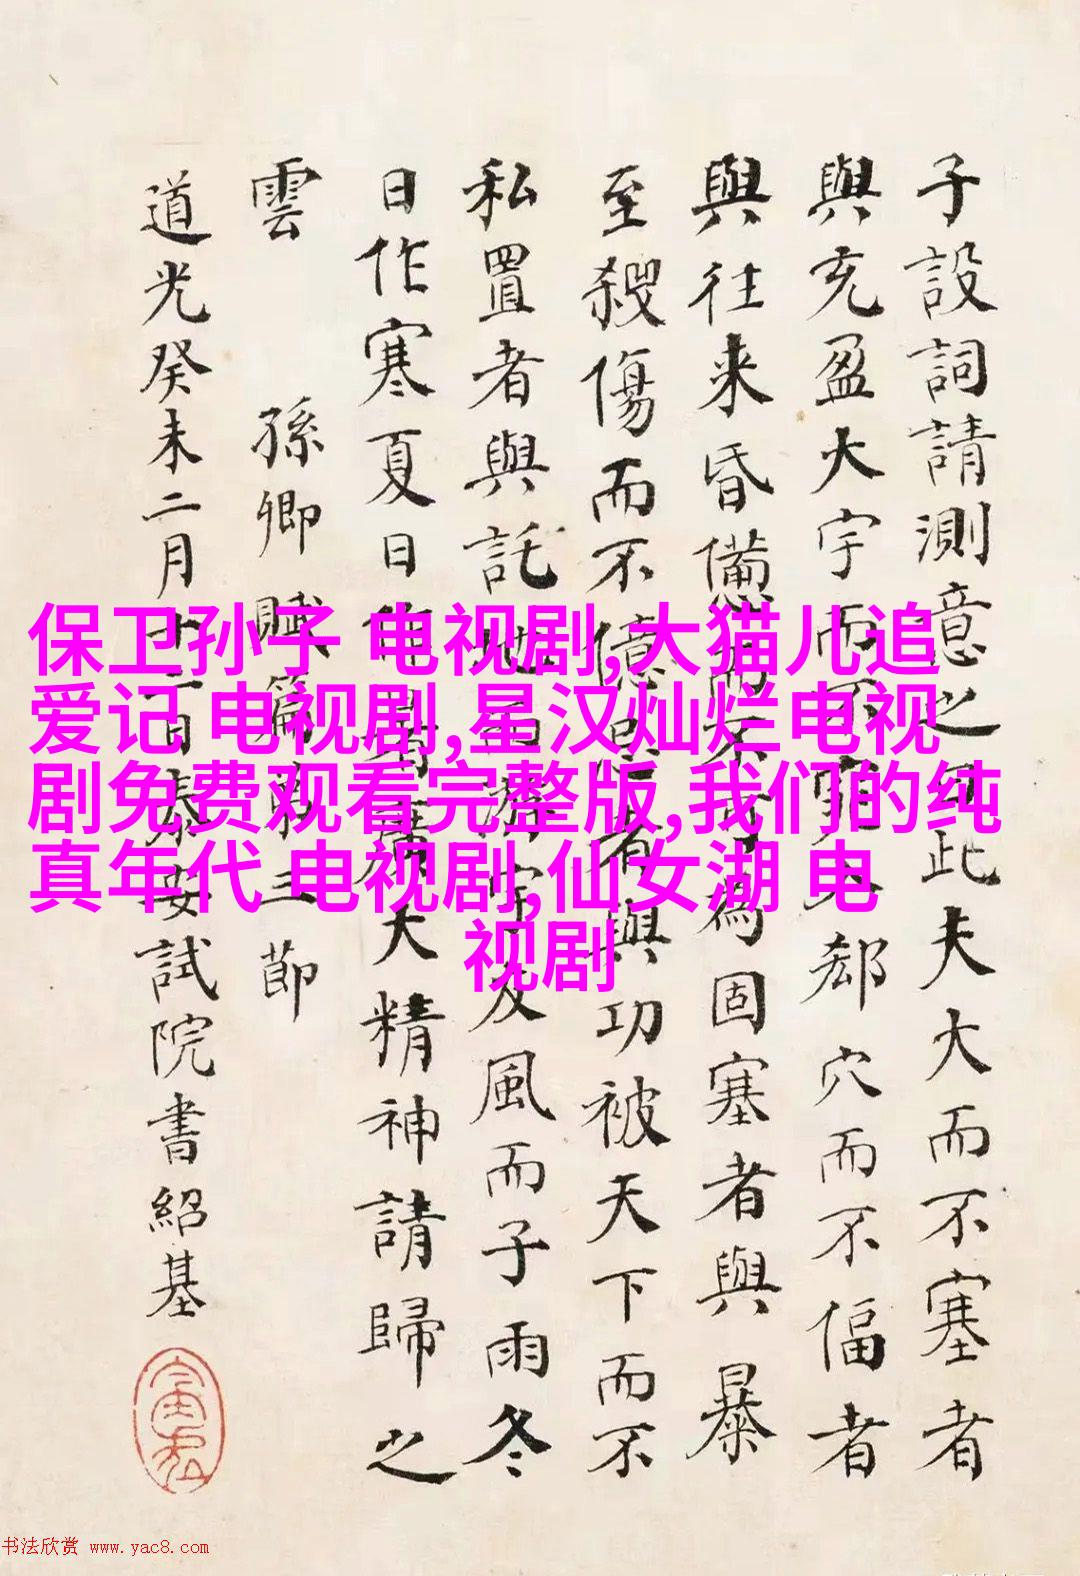 子設詞請測意之曰此夫大而不塞者
與充盈大宇而不窕入郄穴而不偪者
與往来昏憊而不可為固塞者與暴
至殺傷而不億忌者與功被天下而不
私置者與託地而游宇友風而子雨冬
日作寒夏日作暑廣大精神請歸之
雲
孫卿賦篇三節
道光癸未二月十日泰安試院書紹基
保卫孙子 电视剧,大猫儿追
爱记 电视剧,星汉灿烂电视
剧免费观看完整版,我们的纯
真年代 电视剧,仙女湖 电
视剧
书法欣赏 www.yac8.com